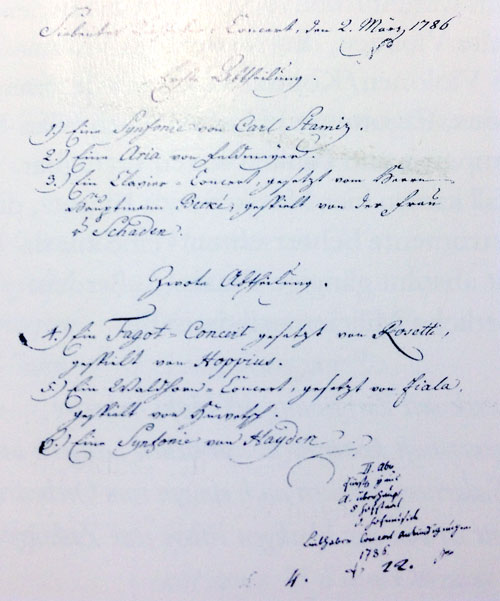 Siebentes Liebhaber-Concert, den 2. März 1786
Erste Abtheilung.
1.) Eine Synfonie von Carl Stamiz.
2.) Eine Aria von Feldmeyer.
3.) Ein Clavier-Concert, gesetzt vom Herrn
Hauptmann Becké, gespielt von der Frau
v. Schaden.
Zwote Abtheilung.
4.) Ein Fagot-Concert gesetzt von Rosetti,
gespielt von Hoppius.
5.) Ein Waldhorn-Concert, gesetzt von Fiala,
gespielt von Zwierzina.
6.) Eine Synfonie von Hayden.
II. Abt.
A. überhaupt
5 Hofstaat
Liebhaber Concert Ankündigungen
1786
4. 22.